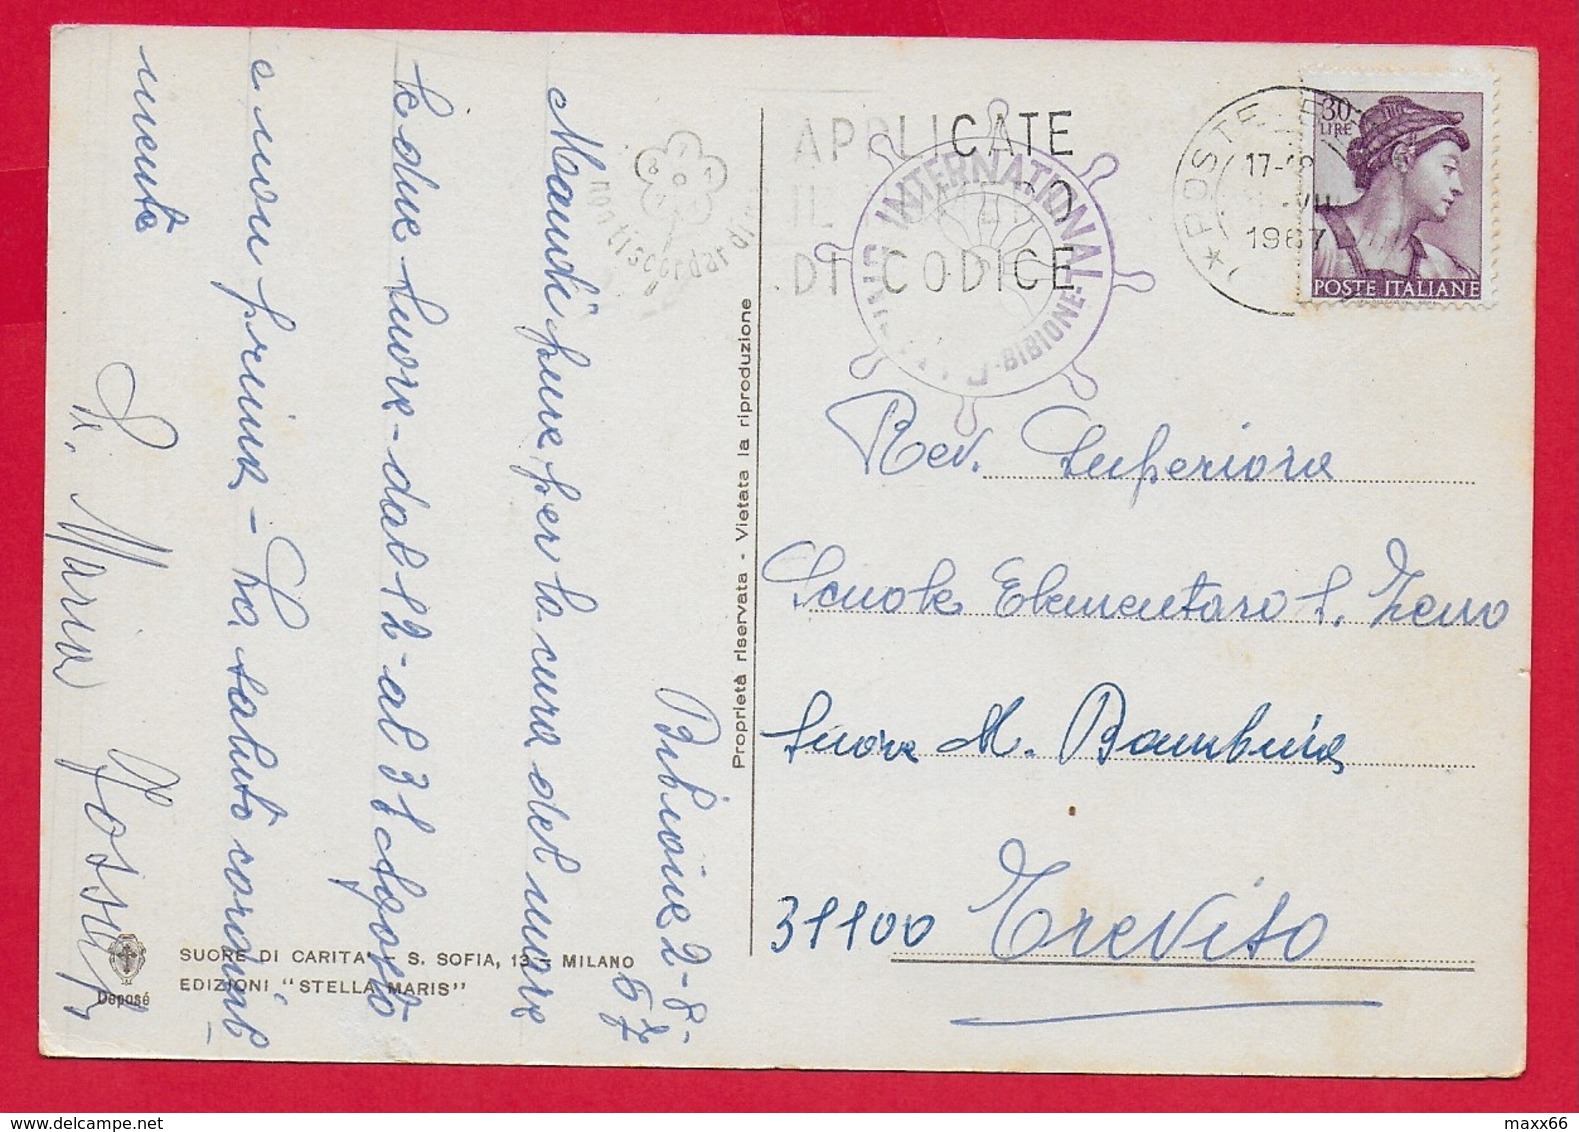 Bibione 2-8-
67
Mandi pure per la cura del mare
le due suore - dal 12 - al 31 Agosto
e non prima - La saluto
mente
Sr. Maria
Proprietà riservata - Vietata la riproduzione
SUORE DI CARITA' - S. SOFIA, 13 - MILANO
EDIZIONI "STELLA MARIS"
Deposé
non ti scordar di
APPLICATE
IL
DI CODICE
INTERNATIONAL
- BIBIONE -
POSTE
17-18
VIII
1967
30
LIRE
POSTE ITALIANE
Rev. Superiora
Scuole Elementare S. Zeno
Suore M. Bambina
31100 Treviso
maxx66